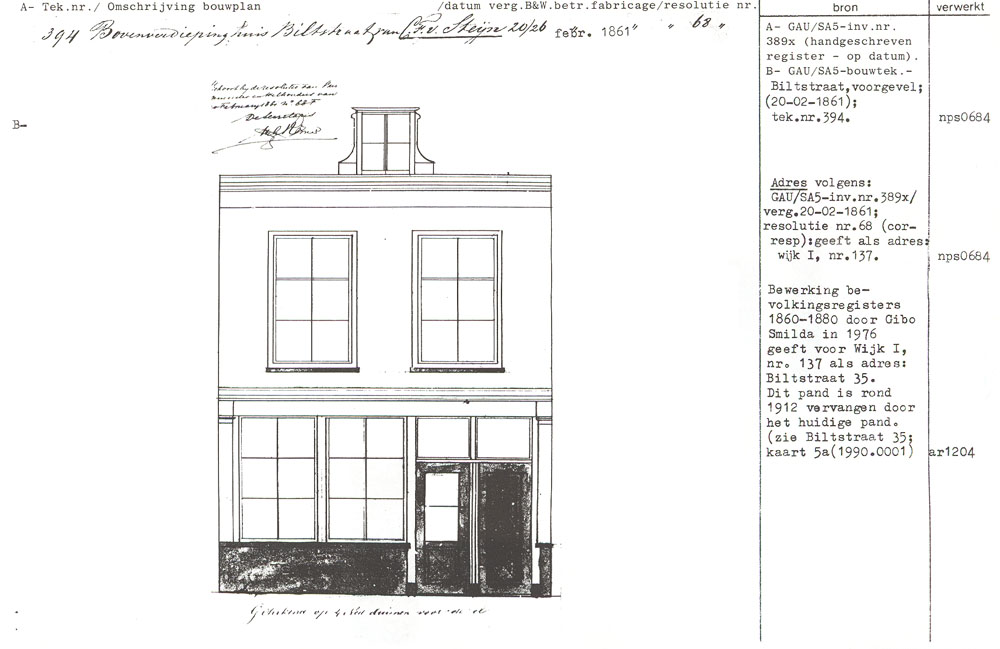 A- Tek.nr./ Omschrijving bouwplan /datum verg.B&W.betr.fabricage/resolutie nr.
394 Bovenverdieping huis Biltstraat van C.F.v. Steijn 20/26 febr. 1861" " 68 "
B-
Februarij
De Secretaris
Geteekend op
voor de el
bron
A- GAU/SA5-inv.nr.
389x (handgeschreven
register - op datum).
B- GAU/SA5-bouwtek.-
Biltstraat,voorgevel;
(20-02-1861);
tek.nr.394.
Adres volgens:
GAU/SA5-inv.nr.389x/
verg.20-02-1861;
resolutie nr.68 (cor-
resp):geeft als adres:
wijk I, nr.137.
Bewerking be-
volkingsregisters
1860-1880 door Gibo
Smilda in 1976
geeft voor Wijk I,
nr. 137 als adres:
Biltstraat 35.
Dit pand is rond
1912 vervangen door
het huidige pand.
(zie Biltstraat 35;
kaart 5a(1990.0001)
verwerkt
nps0684
nps0684
ar1204